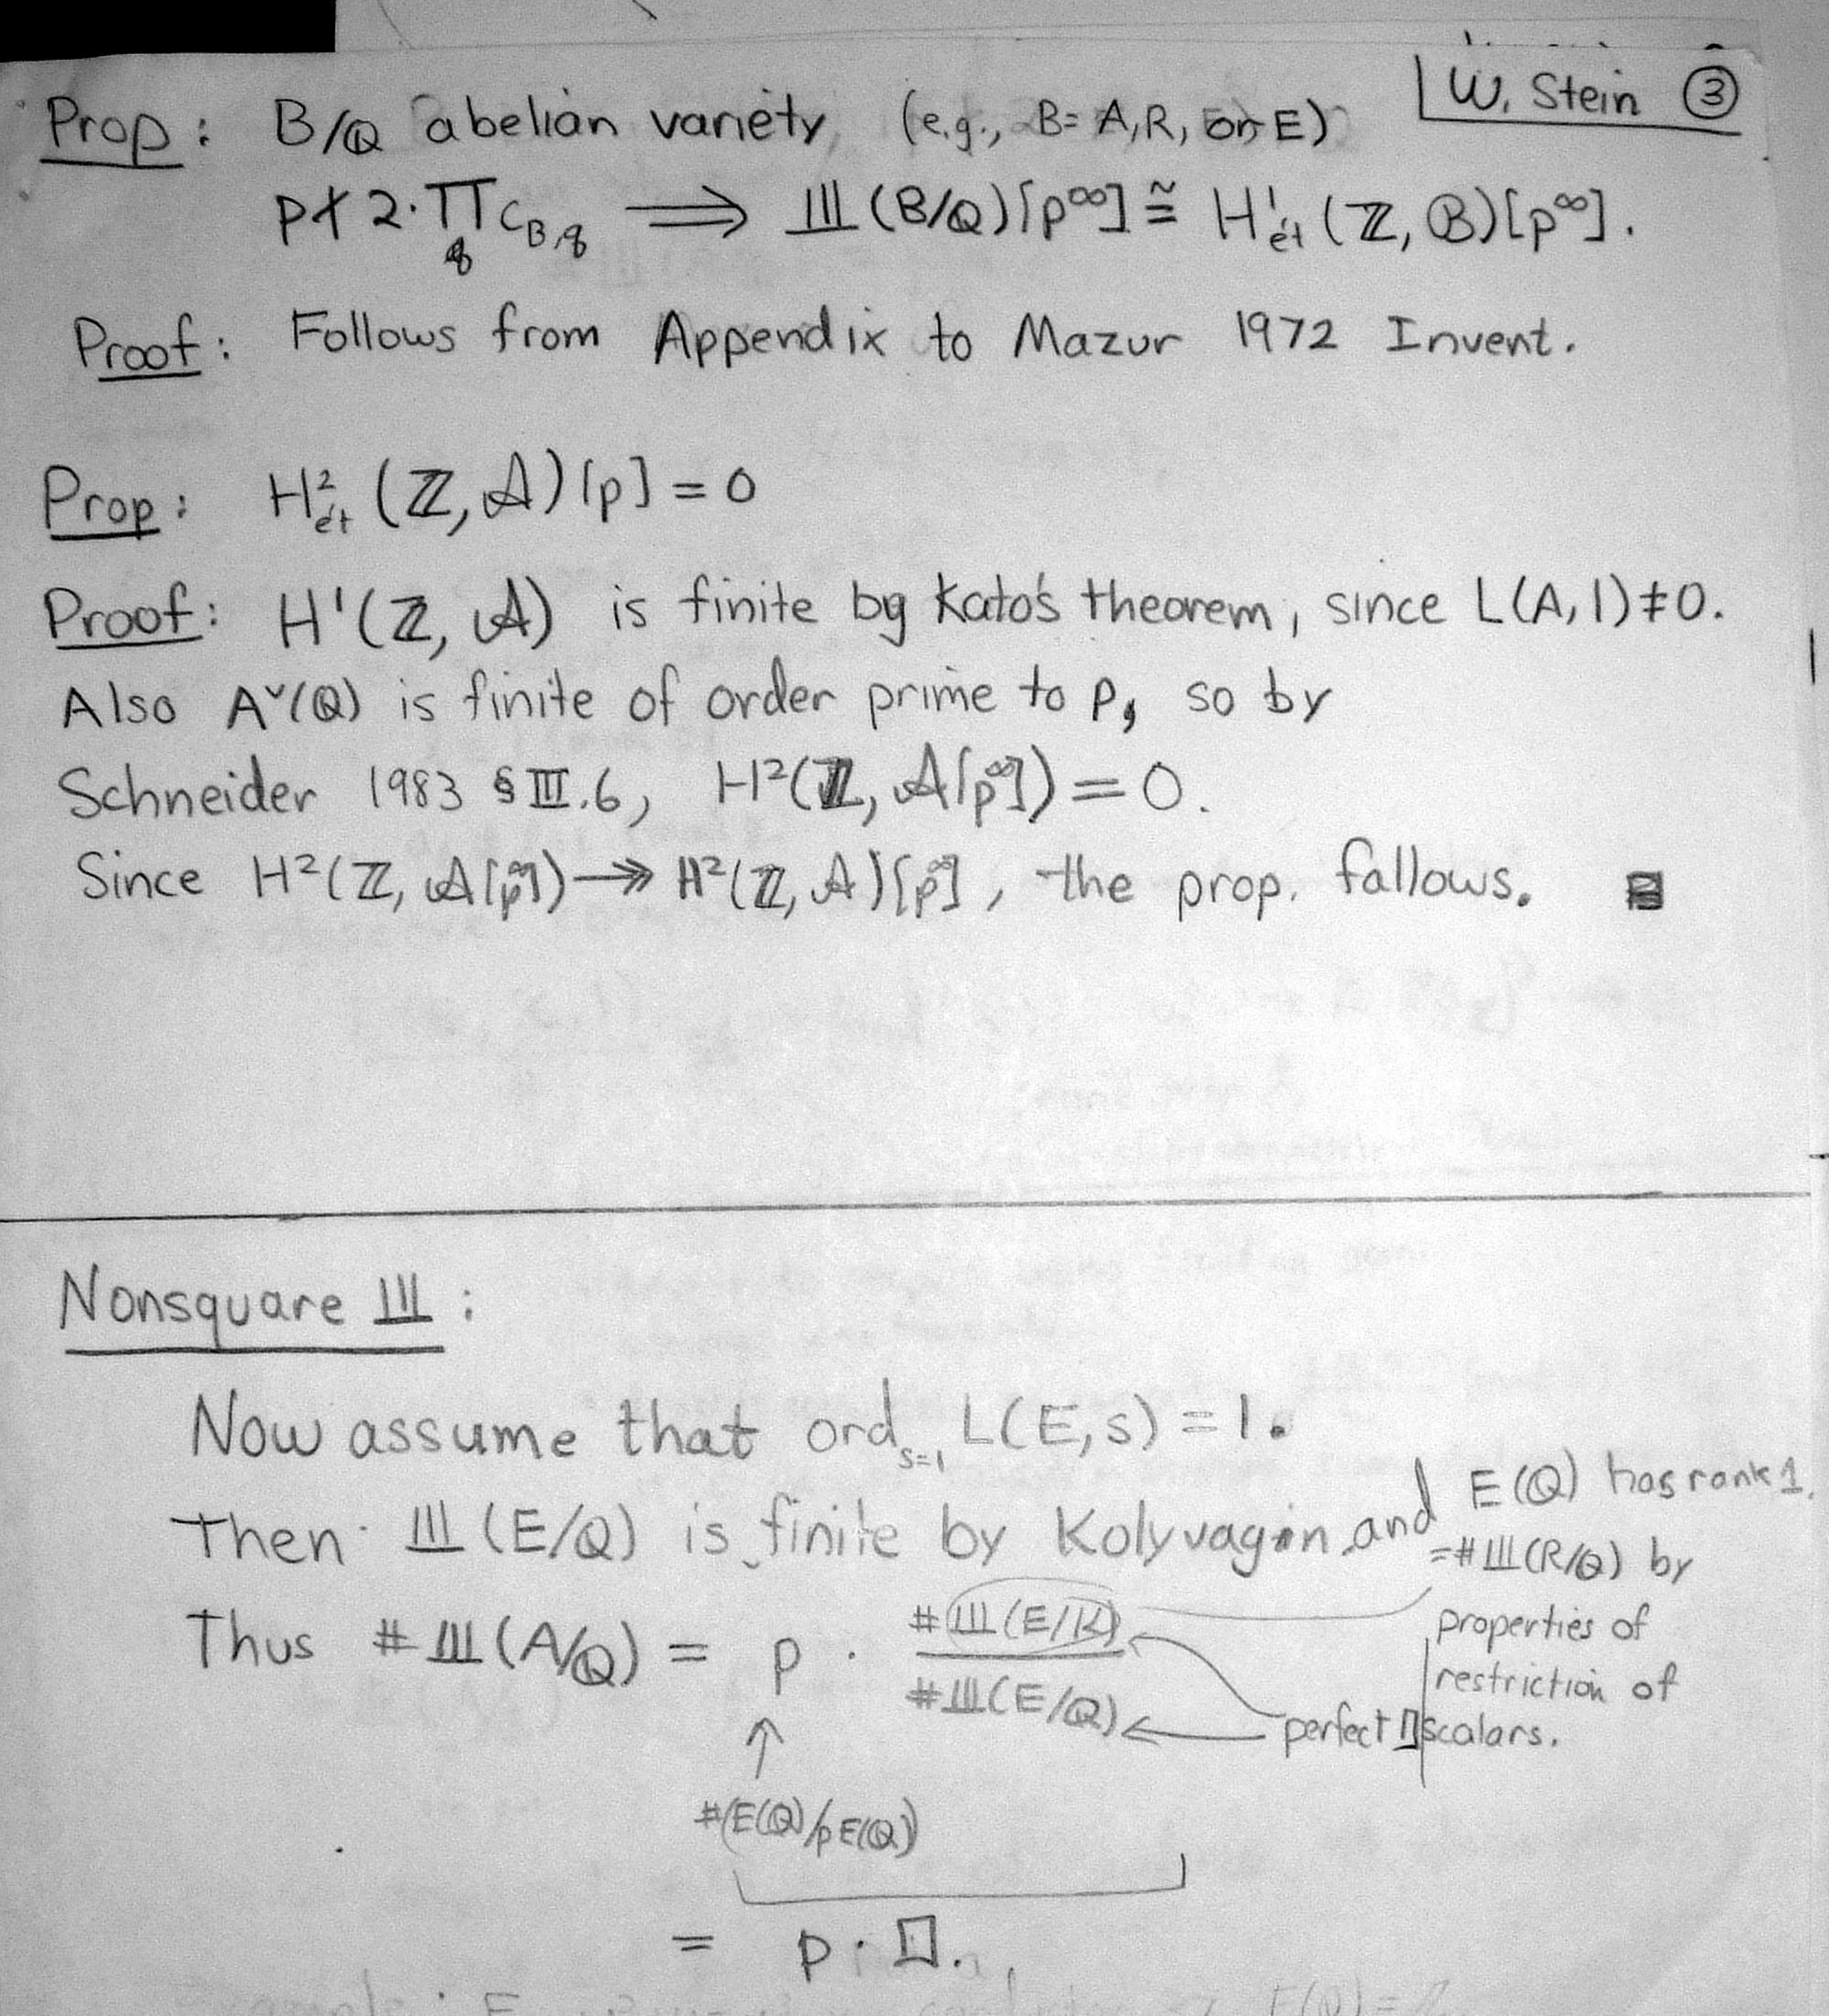 W. Stein ③
Prop: B/Q abelian variety (e.g., B = A, R, or E)
p∤2·∏_q c_{B,q} ⟹ Ш(B/Q)[p^∞] ≅ H¹_ét(ℤ, 𝓑)[p^∞].
Proof: Follows from Appendix to Mazur 1972 Invent.
Prop: H²_ét(ℤ, 𝓐)[p] = 0
Proof: H¹(ℤ, 𝓐) is finite by Kato's theorem, since L(A,1)≠0.
Also A^∨(Q) is finite of order prime to p, so by
Schneider 1983 § III.6, H²(ℤ, 𝓐[p^∞]) = 0.
Since H²(ℤ, 𝓐[p^∞]) ↠ H²(ℤ, 𝓐)[p^∞], the prop. follows.
Nonsquare Ш:
Now assume that ord_{s=1} L(E,s) = 1.
Then Ш(E/Q) is finite by Kolyvagin, and E(Q) has rank 1.
Thus #Ш(A/Q) = p · #Ш(E/K)
#Ш(E/Q)
=#Ш(R/Q) by
properties of
restriction of
scalars.
perfect □
↑
#(E(Q)/pE(Q))
= p·□.